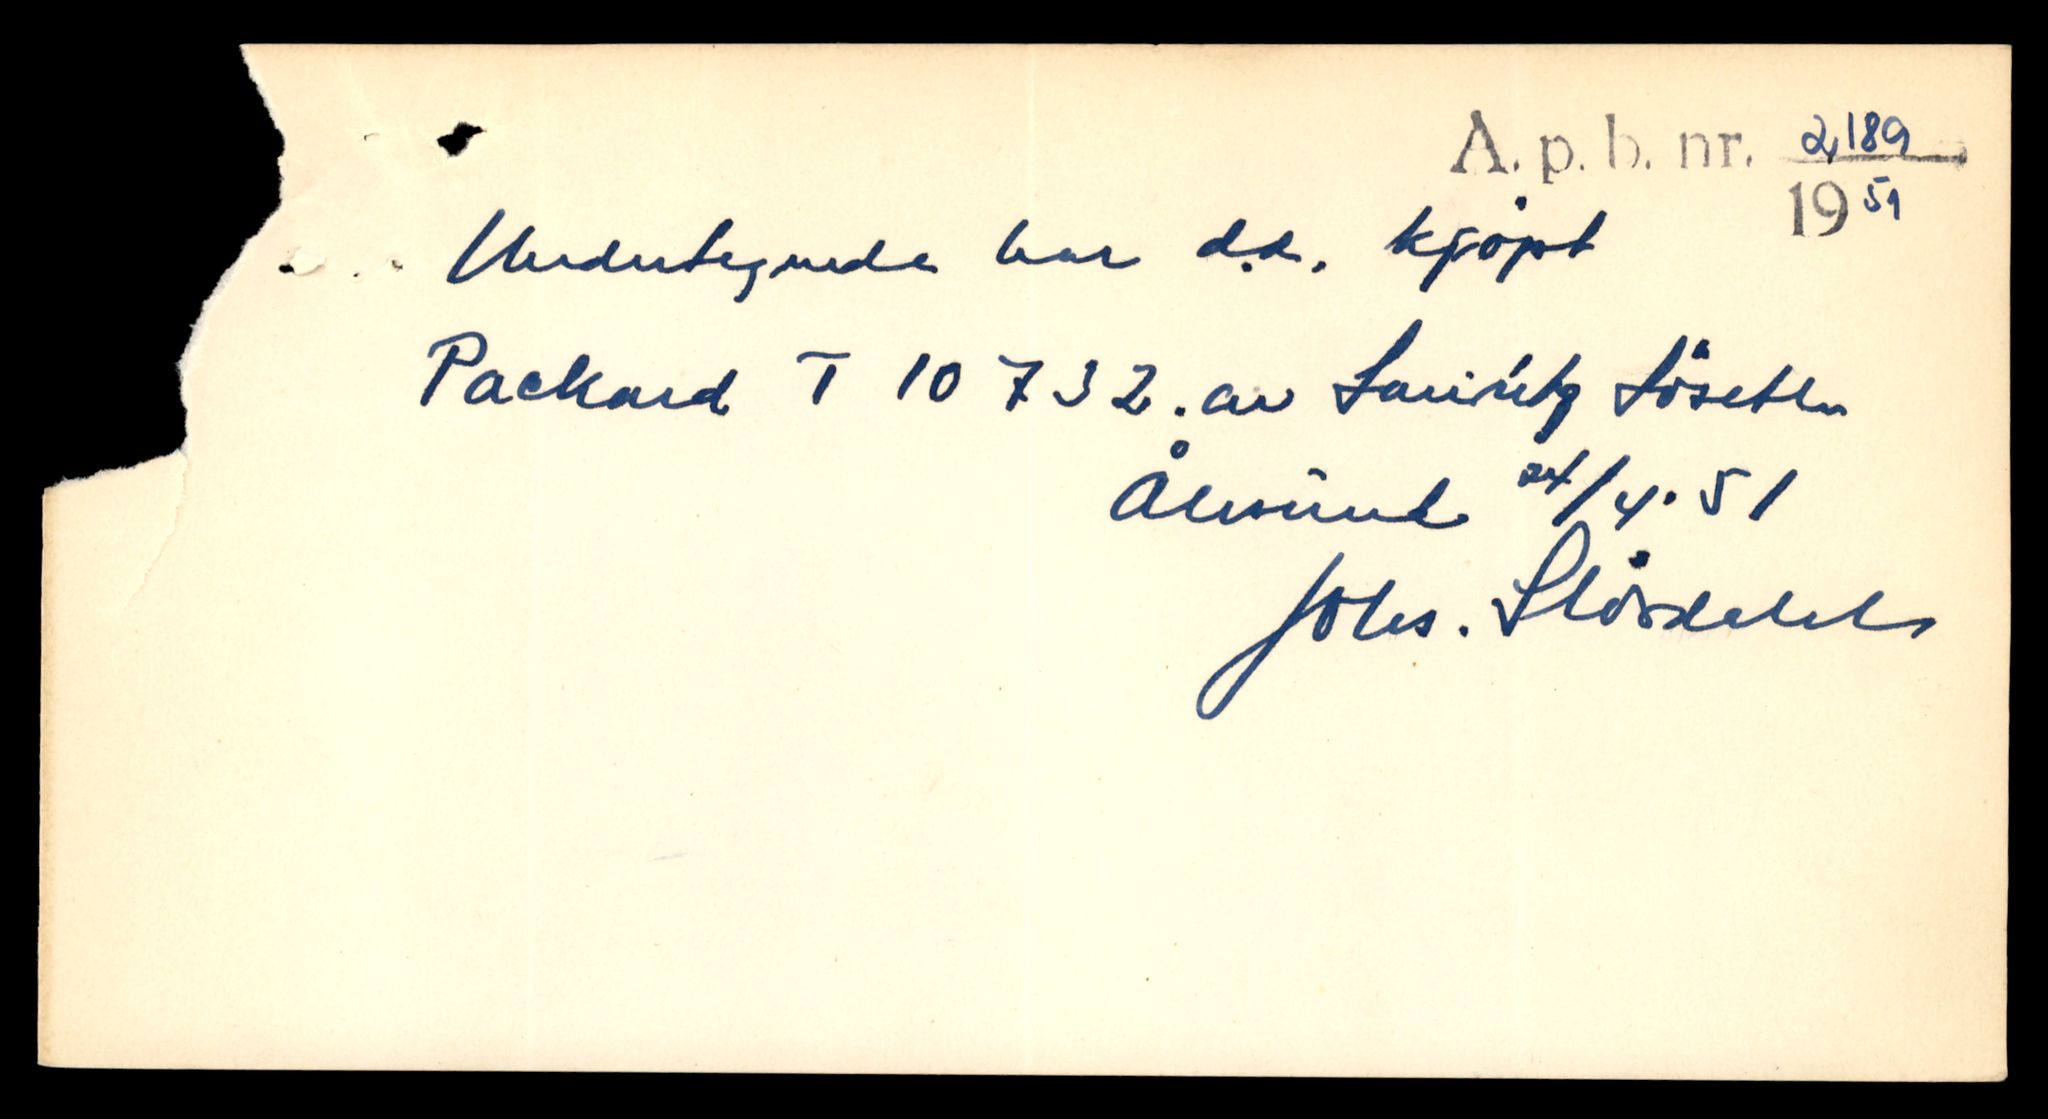 A. p. b. nr. 2189
1951
Undertegnede har d.d. kjöpt
Packard T 10732. av Lauritz Löseth
Ålesund 24/4. 51
Johs. Slördahl